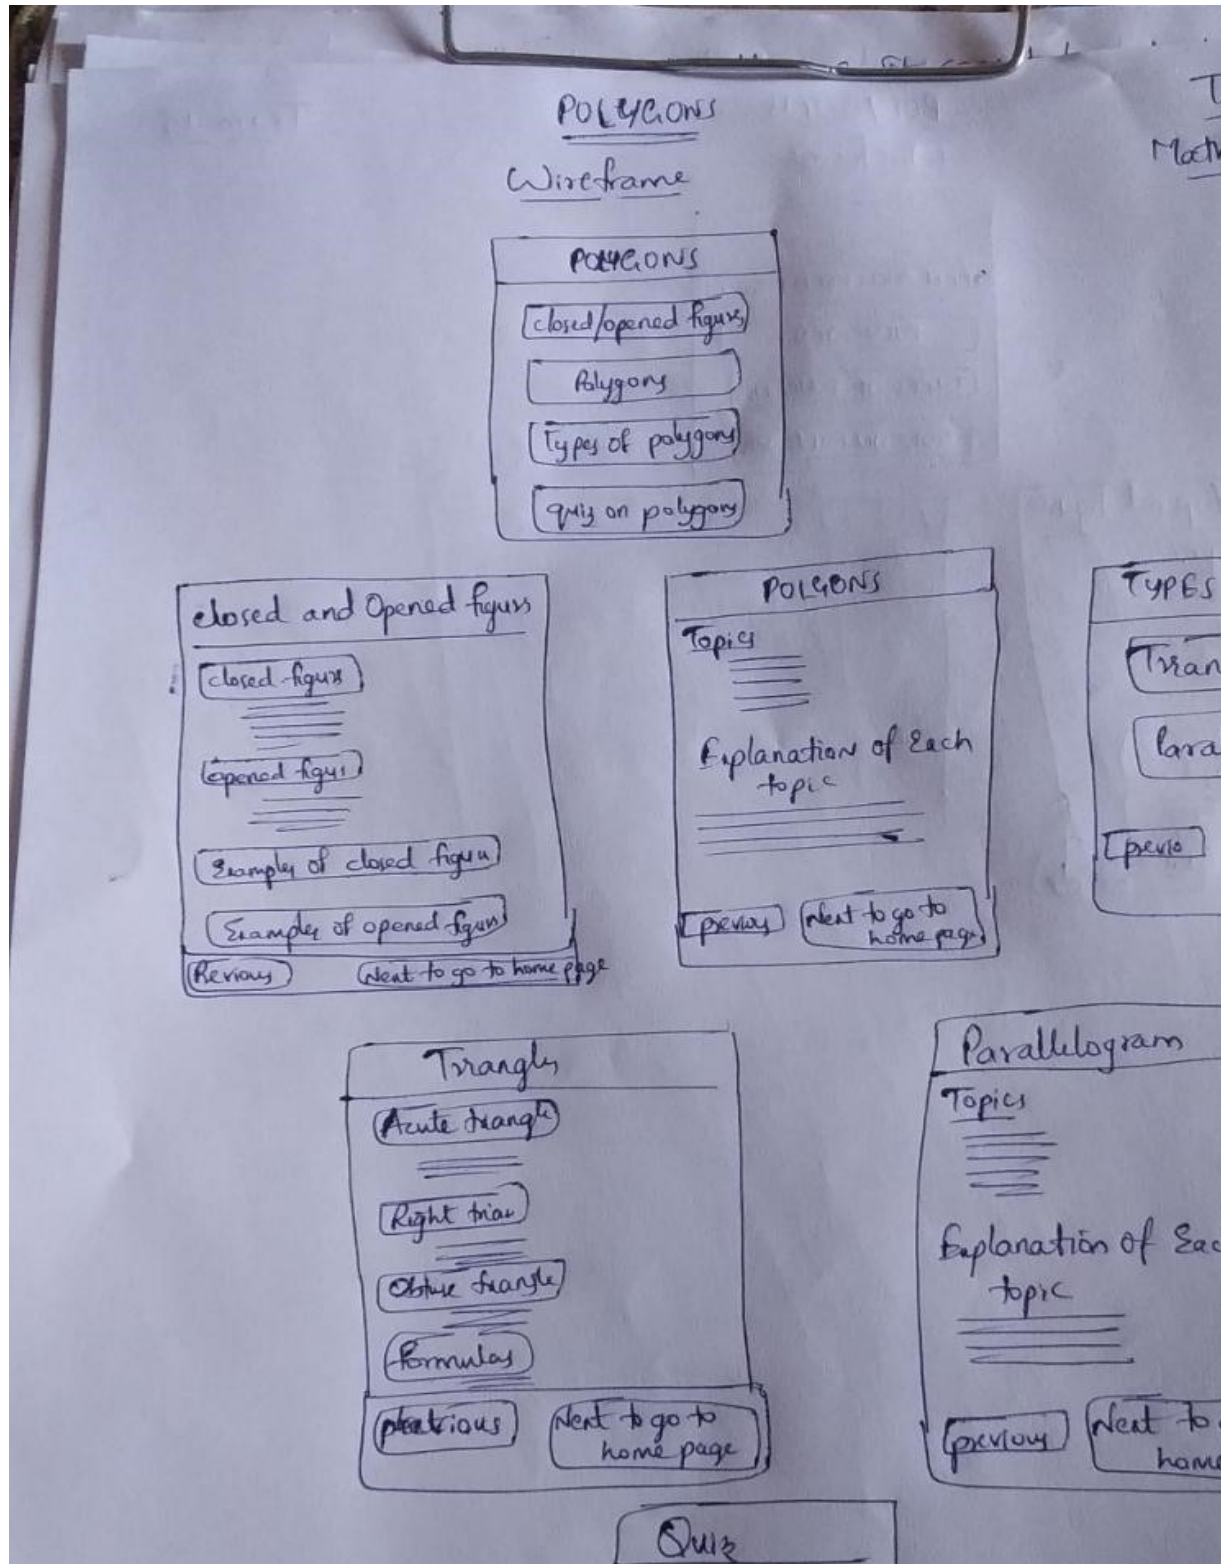 POLYGONS
Wireframe
T
Math
POLYGONS
closed/opened figures
Polygons
Types of polygons
quiz on polygons
closed and Opened figurs
closed figurs
opened figur
Examples of closed figure
Examples of opened figure
Previous
Next to go to home page
POLGONS
Topics
Explanation of Each
topic
previous
Next to go to
home page
TYPES
Trian
Para
previo
Triangles
Acute triangle
Right trian
Obtuse triangle
Formulas
previous
Next to go to
home page
Parallelogram
Topics
Explanation of Eac
topic
previous
Next to
home
Quiz